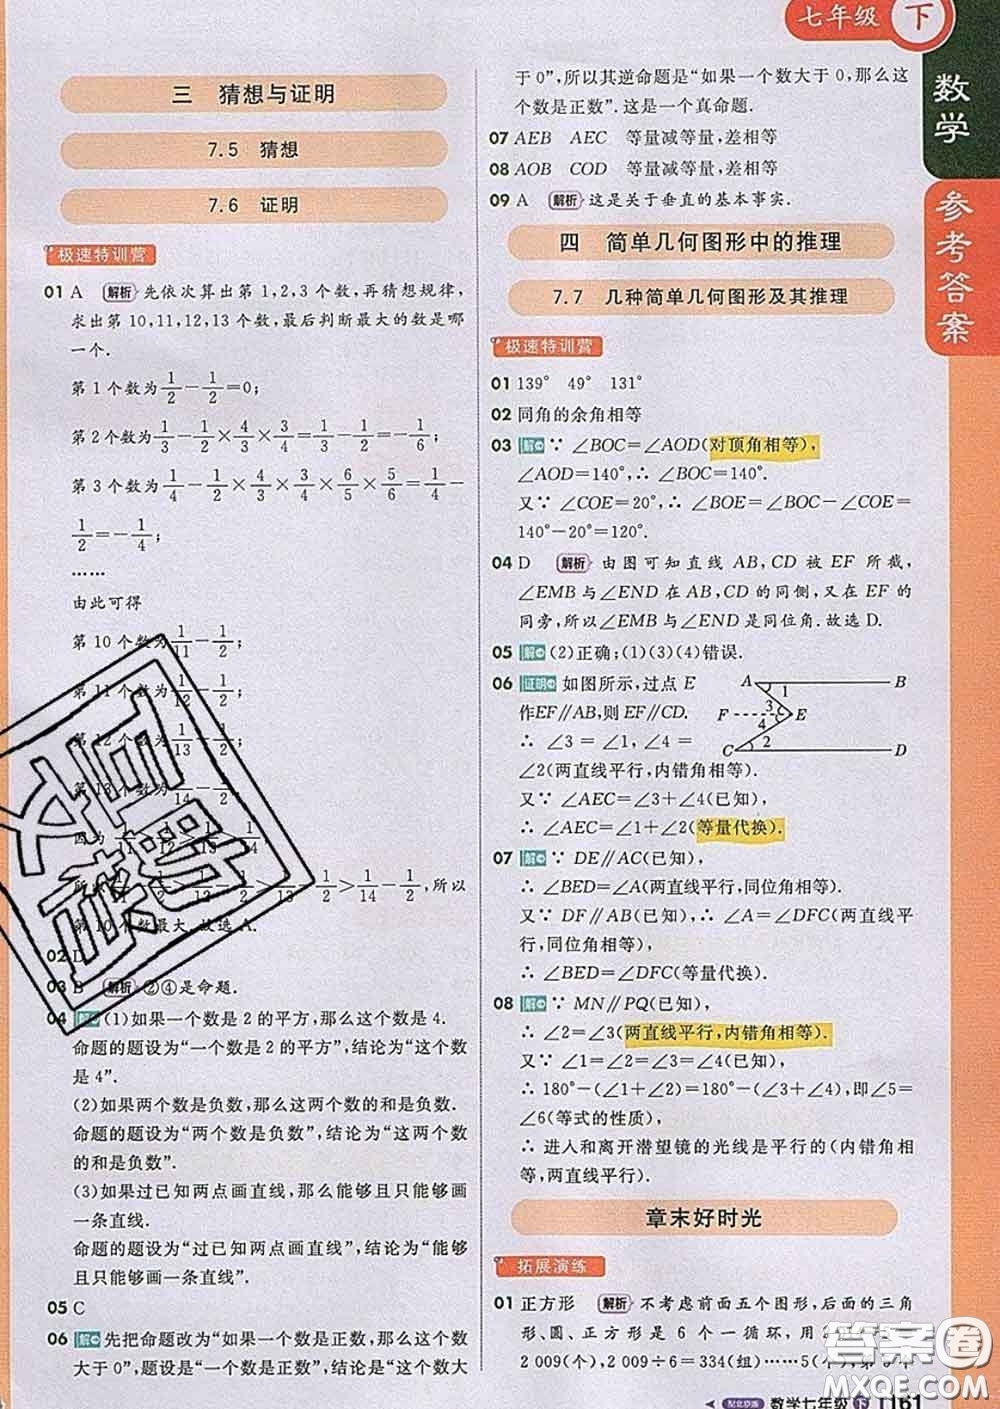 七年级 下
数学
参考答案
三 猜想与证明
7.5 猜想
7.6 证明
极速特训营
01 A 解析 先依次算出第 1,2,3 个数,再猜想规律,
求出第 10,11,12,13 个数,最后判断最大的数是哪
一个.
第 1 个数为 1/2 - 1/2 = 0;
第 2 个数为 1/3 - 1/2 × 4/3 × 3/4 = 1/3 - 1/2 = - 1/6;
第 3 个数为 1/4 - 1/2 × 4/3 × 3/4 × 6/5 × 5/6 = 1/4 -
1/2 = - 1/4;
……
由此可得
第 10 个数为 1/11 - 1/2;
第 11 个数为 1/12 - 1/2;
第 12 个数为 1/13 - 1/2;
第 13 个数为 1/14 - 1/2.
因为 1/11 > 1/12 > 1/13 > 1/14,
所以 1/11 - 1/2 > 1/12 - 1/2 > 1/13 - 1/2 > 1/14 - 1/2, 所以
第 10 个数最大. 故选 A.
02 D
03 B 解析 ②④是命题.
04 解 (1)如果一个数是 2 的平方,那么这个数是 4.
命题的题设为“一个数是 2 的平方”,结论为“这个数
是 4”.
(2)如果两个数是负数,那么这两个数的和是负数.
命题的题设为“两个数是负数”,结论为“这两个数
的和是负数”.
(3)如果过已知两点画直线,那么能够且只能够画
一条直线.
命题的题设为“过已知两点画直线”,结论为“能够
且只能够画一条直线”.
05 C
06 解 先把命题改为“如果一个数是正数,那么这个数
大于 0”,题设是“一个数是正数”,结论是“这个数大
于 0”,所以其逆命题是“如果一个数大于 0,那么这
个数是正数”. 这是一个真命题.
07 AEB AEC 等量减等量,差相等
08 AOB COD 等量减等量,差相等
09 A 解析 这是关于垂直的基本事实.
四 简单几何图形中的推理
7.7 几种简单几何图形及其推理
极速特训营
01 139° 49° 131°
02 同角的余角相等
03 解 ∵ ∠BOC=∠AOD(对顶角相等),
∠AOD=140°,∴ ∠BOC=140°.
又∵ ∠COE=20°,∴ ∠BOE=∠BOC-∠COE=
140°-20°=120°.
04 D 解析 由图可知直线 AB,CD 被 EF 所截,
∠EMB 与∠END 在 AB,CD 的同侧,又在 EF 的
同旁,所以∠EMB 与∠END 是同位角. 故选 D.
05 解 (2)正确;(1)(3)(4)错误.
06 证明 如图所示,过点 E
作EF∥AB,则 EF∥CD.
∴ ∠3 = ∠1, ∠4 =
∠2(两直线平行,内错角相等).
又∵ ∠AEC=∠3+∠4(已知),
∴ ∠AEC=∠1+∠2(等量代换).
A B
1
F 3 E
4
2
C D
07 解 ∵ DE∥AC(已知),
∴ ∠BED=∠A(两直线平行,同位角相等).
又∵ DF∥AB(已知),∴ ∠A=∠DFC(两直线平
行,同位角相等).
∴ ∠BED=∠DFC(等量代换).
08 解 ∵ MN∥PQ(已知),
∴ ∠2=∠3(两直线平行,内错角相等).
又∵ ∠1=∠2=∠3=∠4(已知),
∴ 180°-(∠1+∠2)=180°-(∠3+∠4),即∠5=
∠6(等式的性质).
∴ 进入和离开潜望镜的光线是平行的(内错角相
等,两直线平行).
章末好时光
拓展演练
01 正方形 解析 不考虑前面五个图形,后面的三角
形、圆、正方形是 6 个一循环,用 2
2 009(个),2 009÷6=334(组)……5(个),第 5 个
配北京版 数学七年级 下 161
答案圈
MXQE.COM